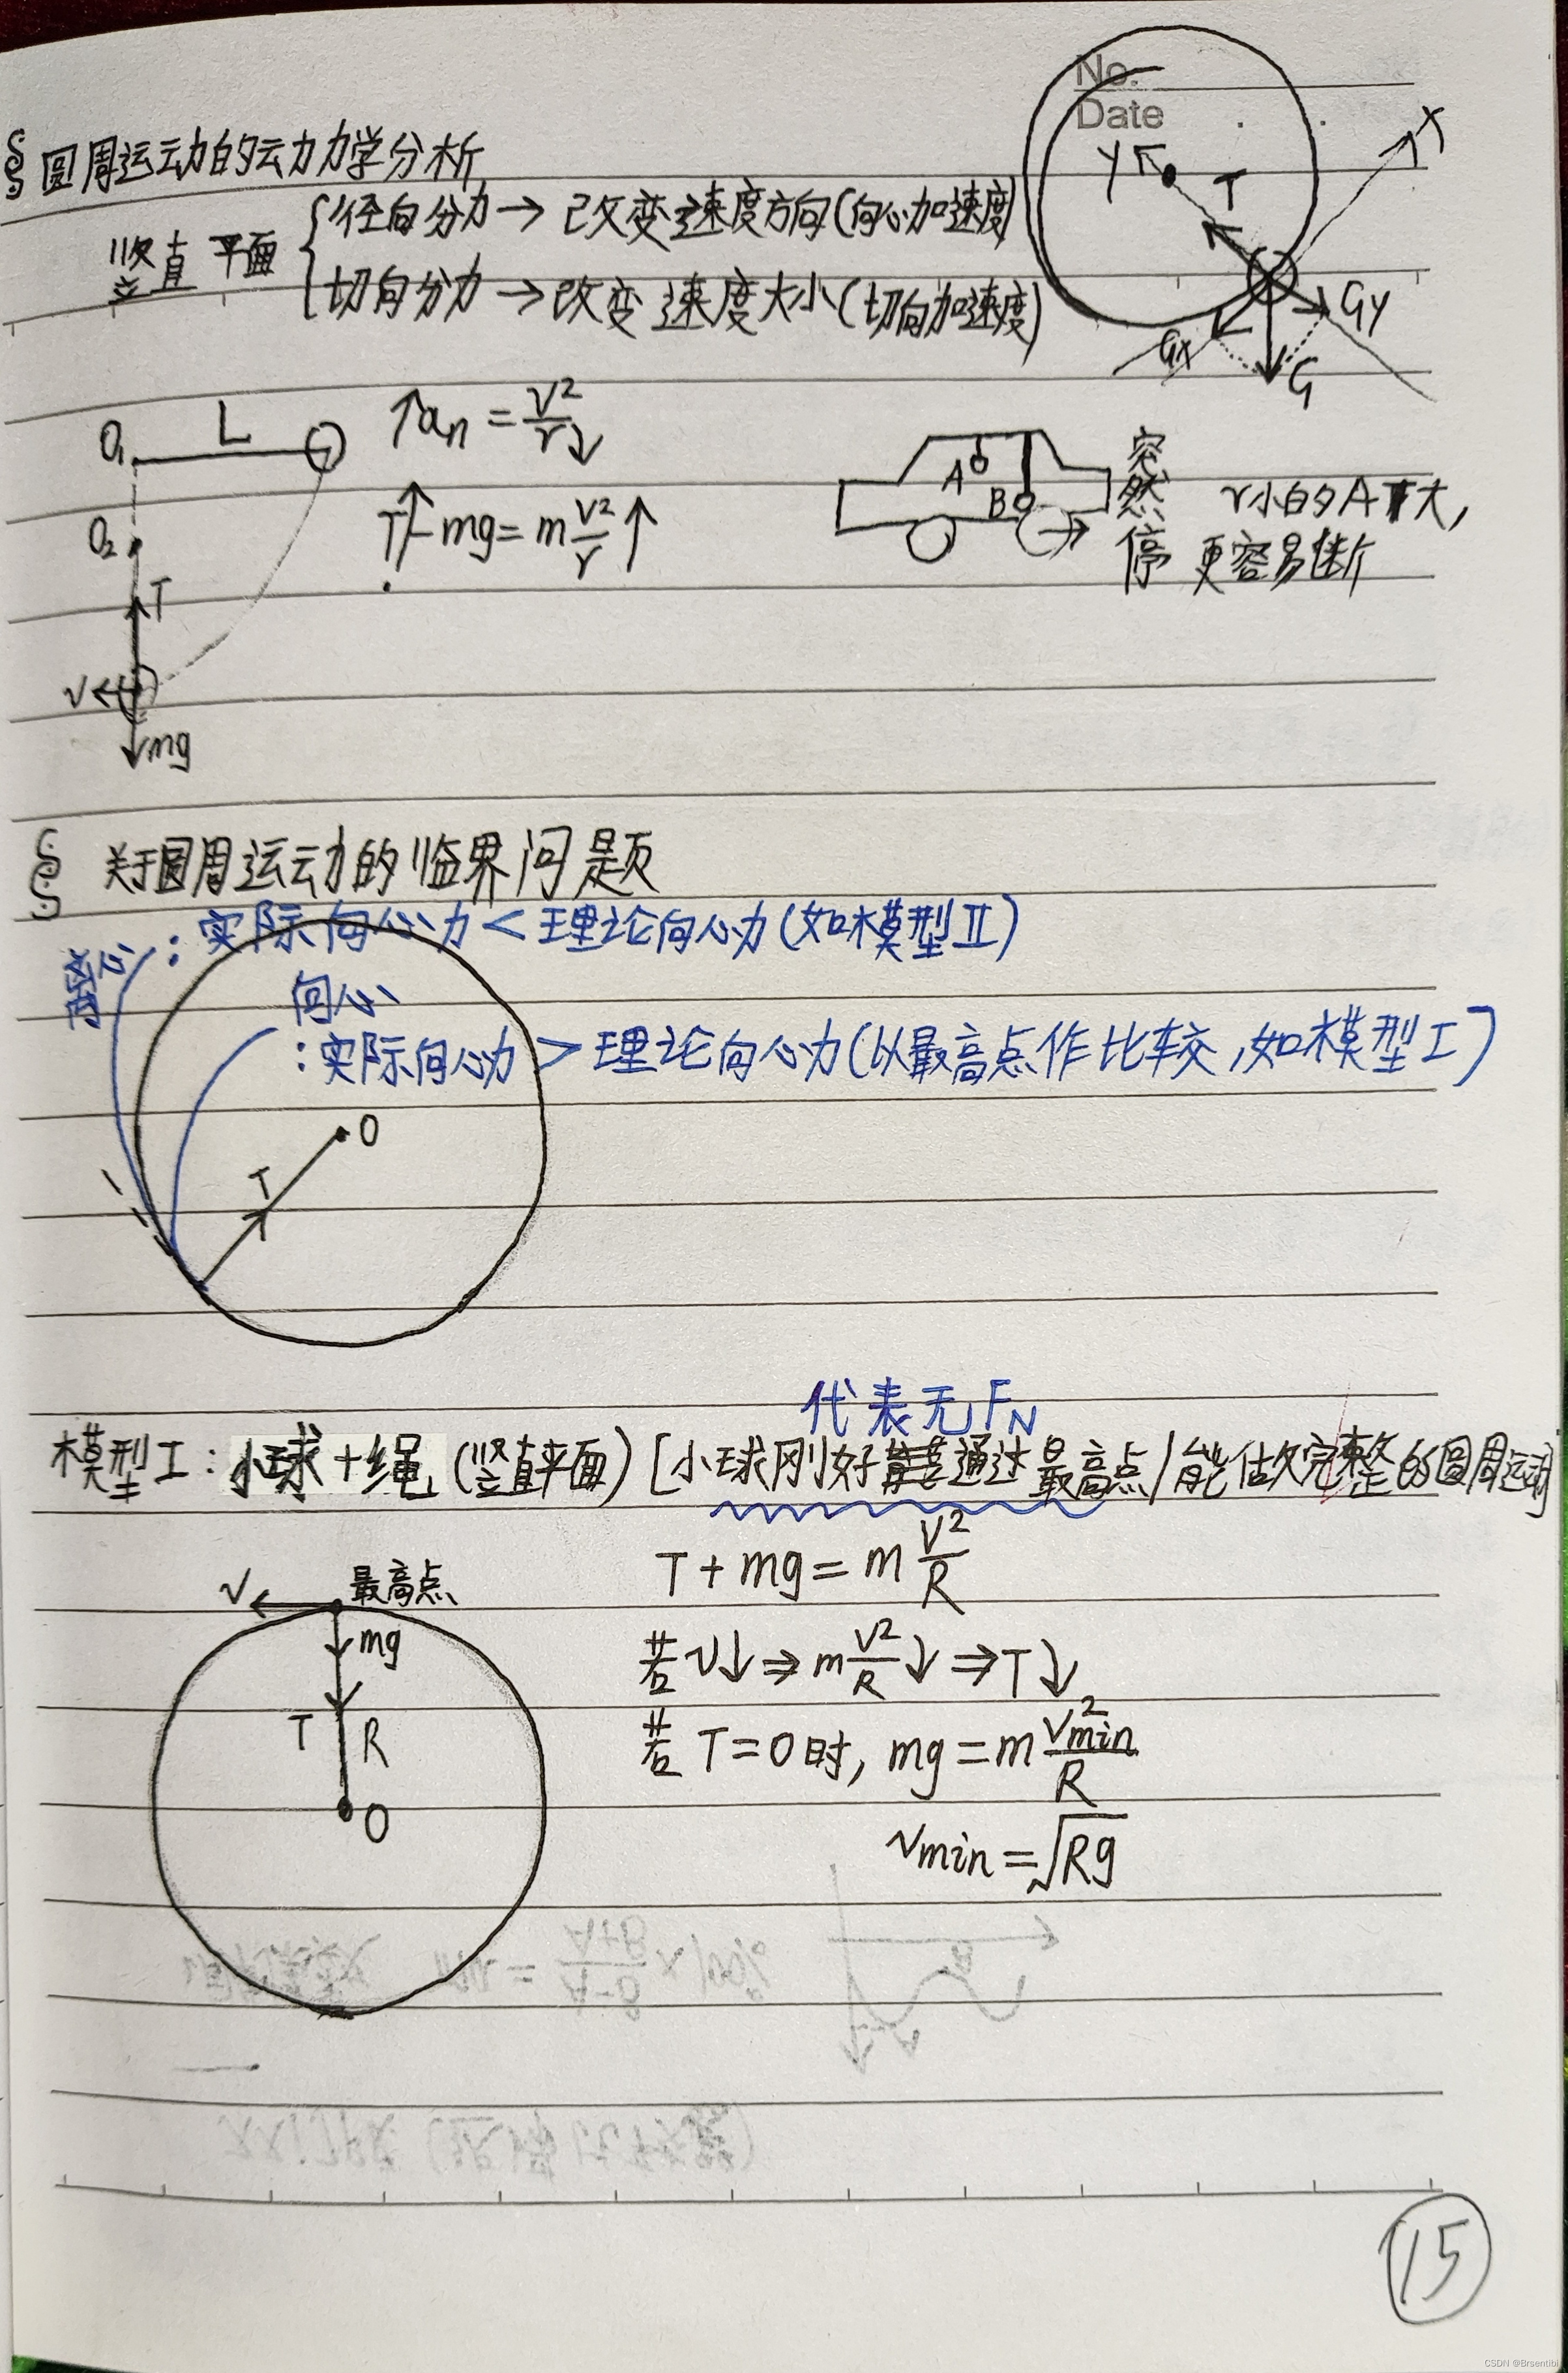 No.
Date
§ 圆周运动的动力学分析
竖直平面 { 径向分力 → 改变速度方向(向心加速度)
切向分力 → 改变速度大小(切向加速度)
Y T X
Gx Gy
G
O₁ L ↑aₙ = v²/r↓
O₂ T↑-mg = m v²/r ↑
T
v
mg
A B 突然停 r小的A T大,
更容易断
§ 关于圆周运动的临界问题
离心:实际向心力 < 理论向心力(如模型Ⅱ)
向心
:实际向心力 > 理论向心力(以最高点作比较,如模型Ⅰ)
O
T
代表无F_N
模型Ⅰ:小球+绳(竖直平面)[小球刚好能通过最高点/能做完整的圆周运动
v 最高点 T+mg = m v²/R
mg 若v↓⇒m v²/R↓⇒T↓
T R 若T=0时, mg = m v²min/R
O vmin = √Rg
15
CSDN @Brsentibi